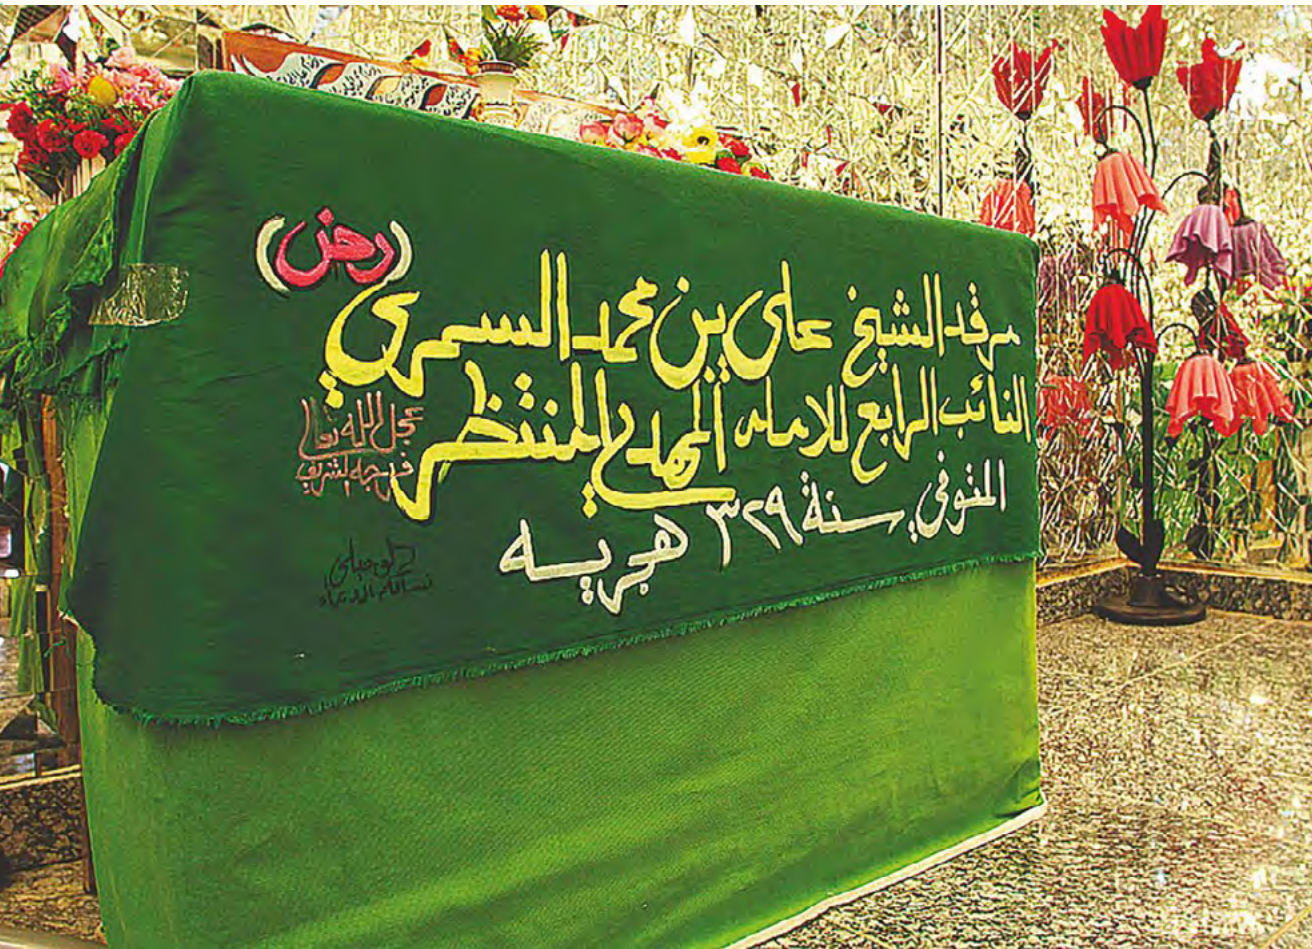 مرقد الشيخ علي بن محمد السمري (رض)
النائب الرابع للامام المهدي المنتظر
عجل الله تعالى
فرجه الشريف
المتوفي سنة ٣٢٩ هجريه
نسالكم الدعاء